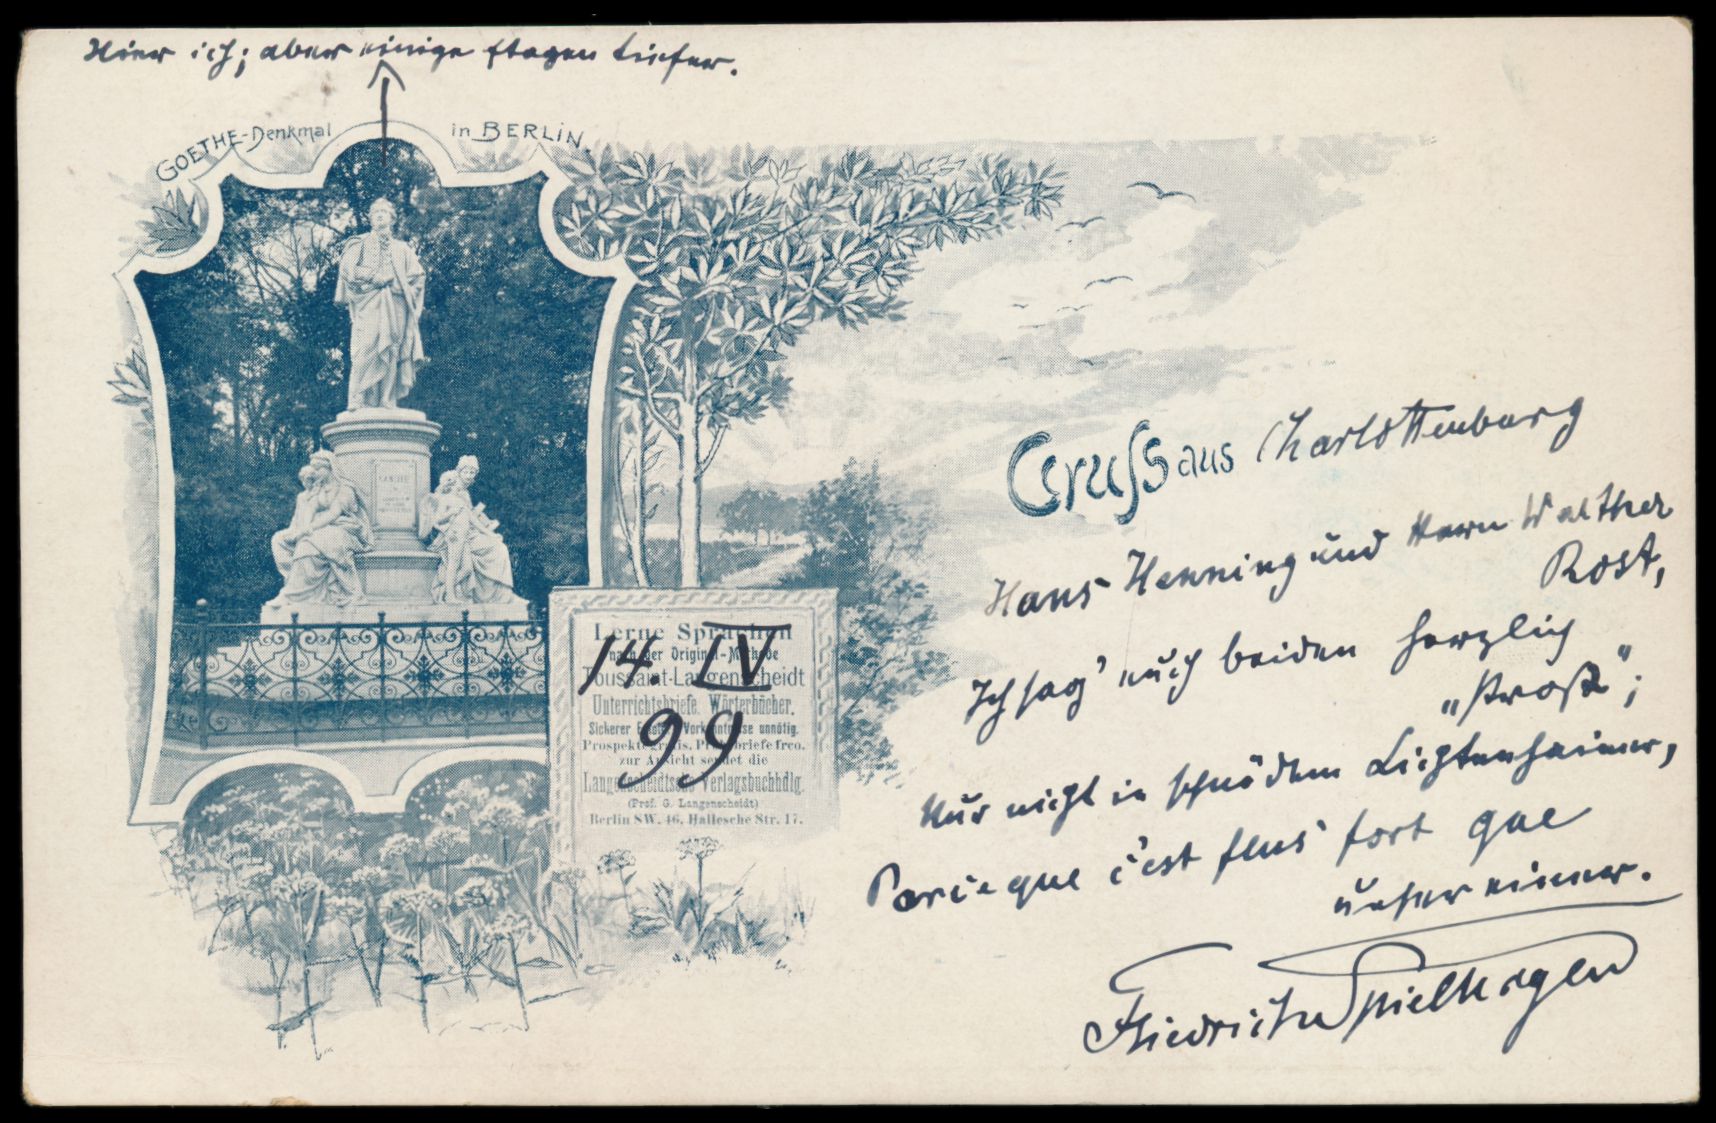 Hier ich; aber einige Etagen tiefer.
GOETHE-Denkmal in BERLIN.
GOETHE
Gruss aus Charlottenburg
Hans Henning und Herrn Walther
Rost,
Ich sag' euch beiden herzlich
„Prost“;
Nur nicht in schnödem Lichtenhainer,
Parceque c'est plus fort que
unsereiner.
Friedrich Spielhagen
14 IV
99
Lerne Sprachen
nach der Original-Methode
Toussaint-Langenscheidt
Unterrichtsbriefe. Wörterbücher.
Sicherer Erfolg. Vorkenntnisse unnötig.
Prospekt gratis. Probebriefe frco.
zur Ansicht sendet die
Langenscheidtsche Verlagsbuchhdlg.
(Prof. G. Langenscheidt)
Berlin SW. 46, Hallesche Str. 17.